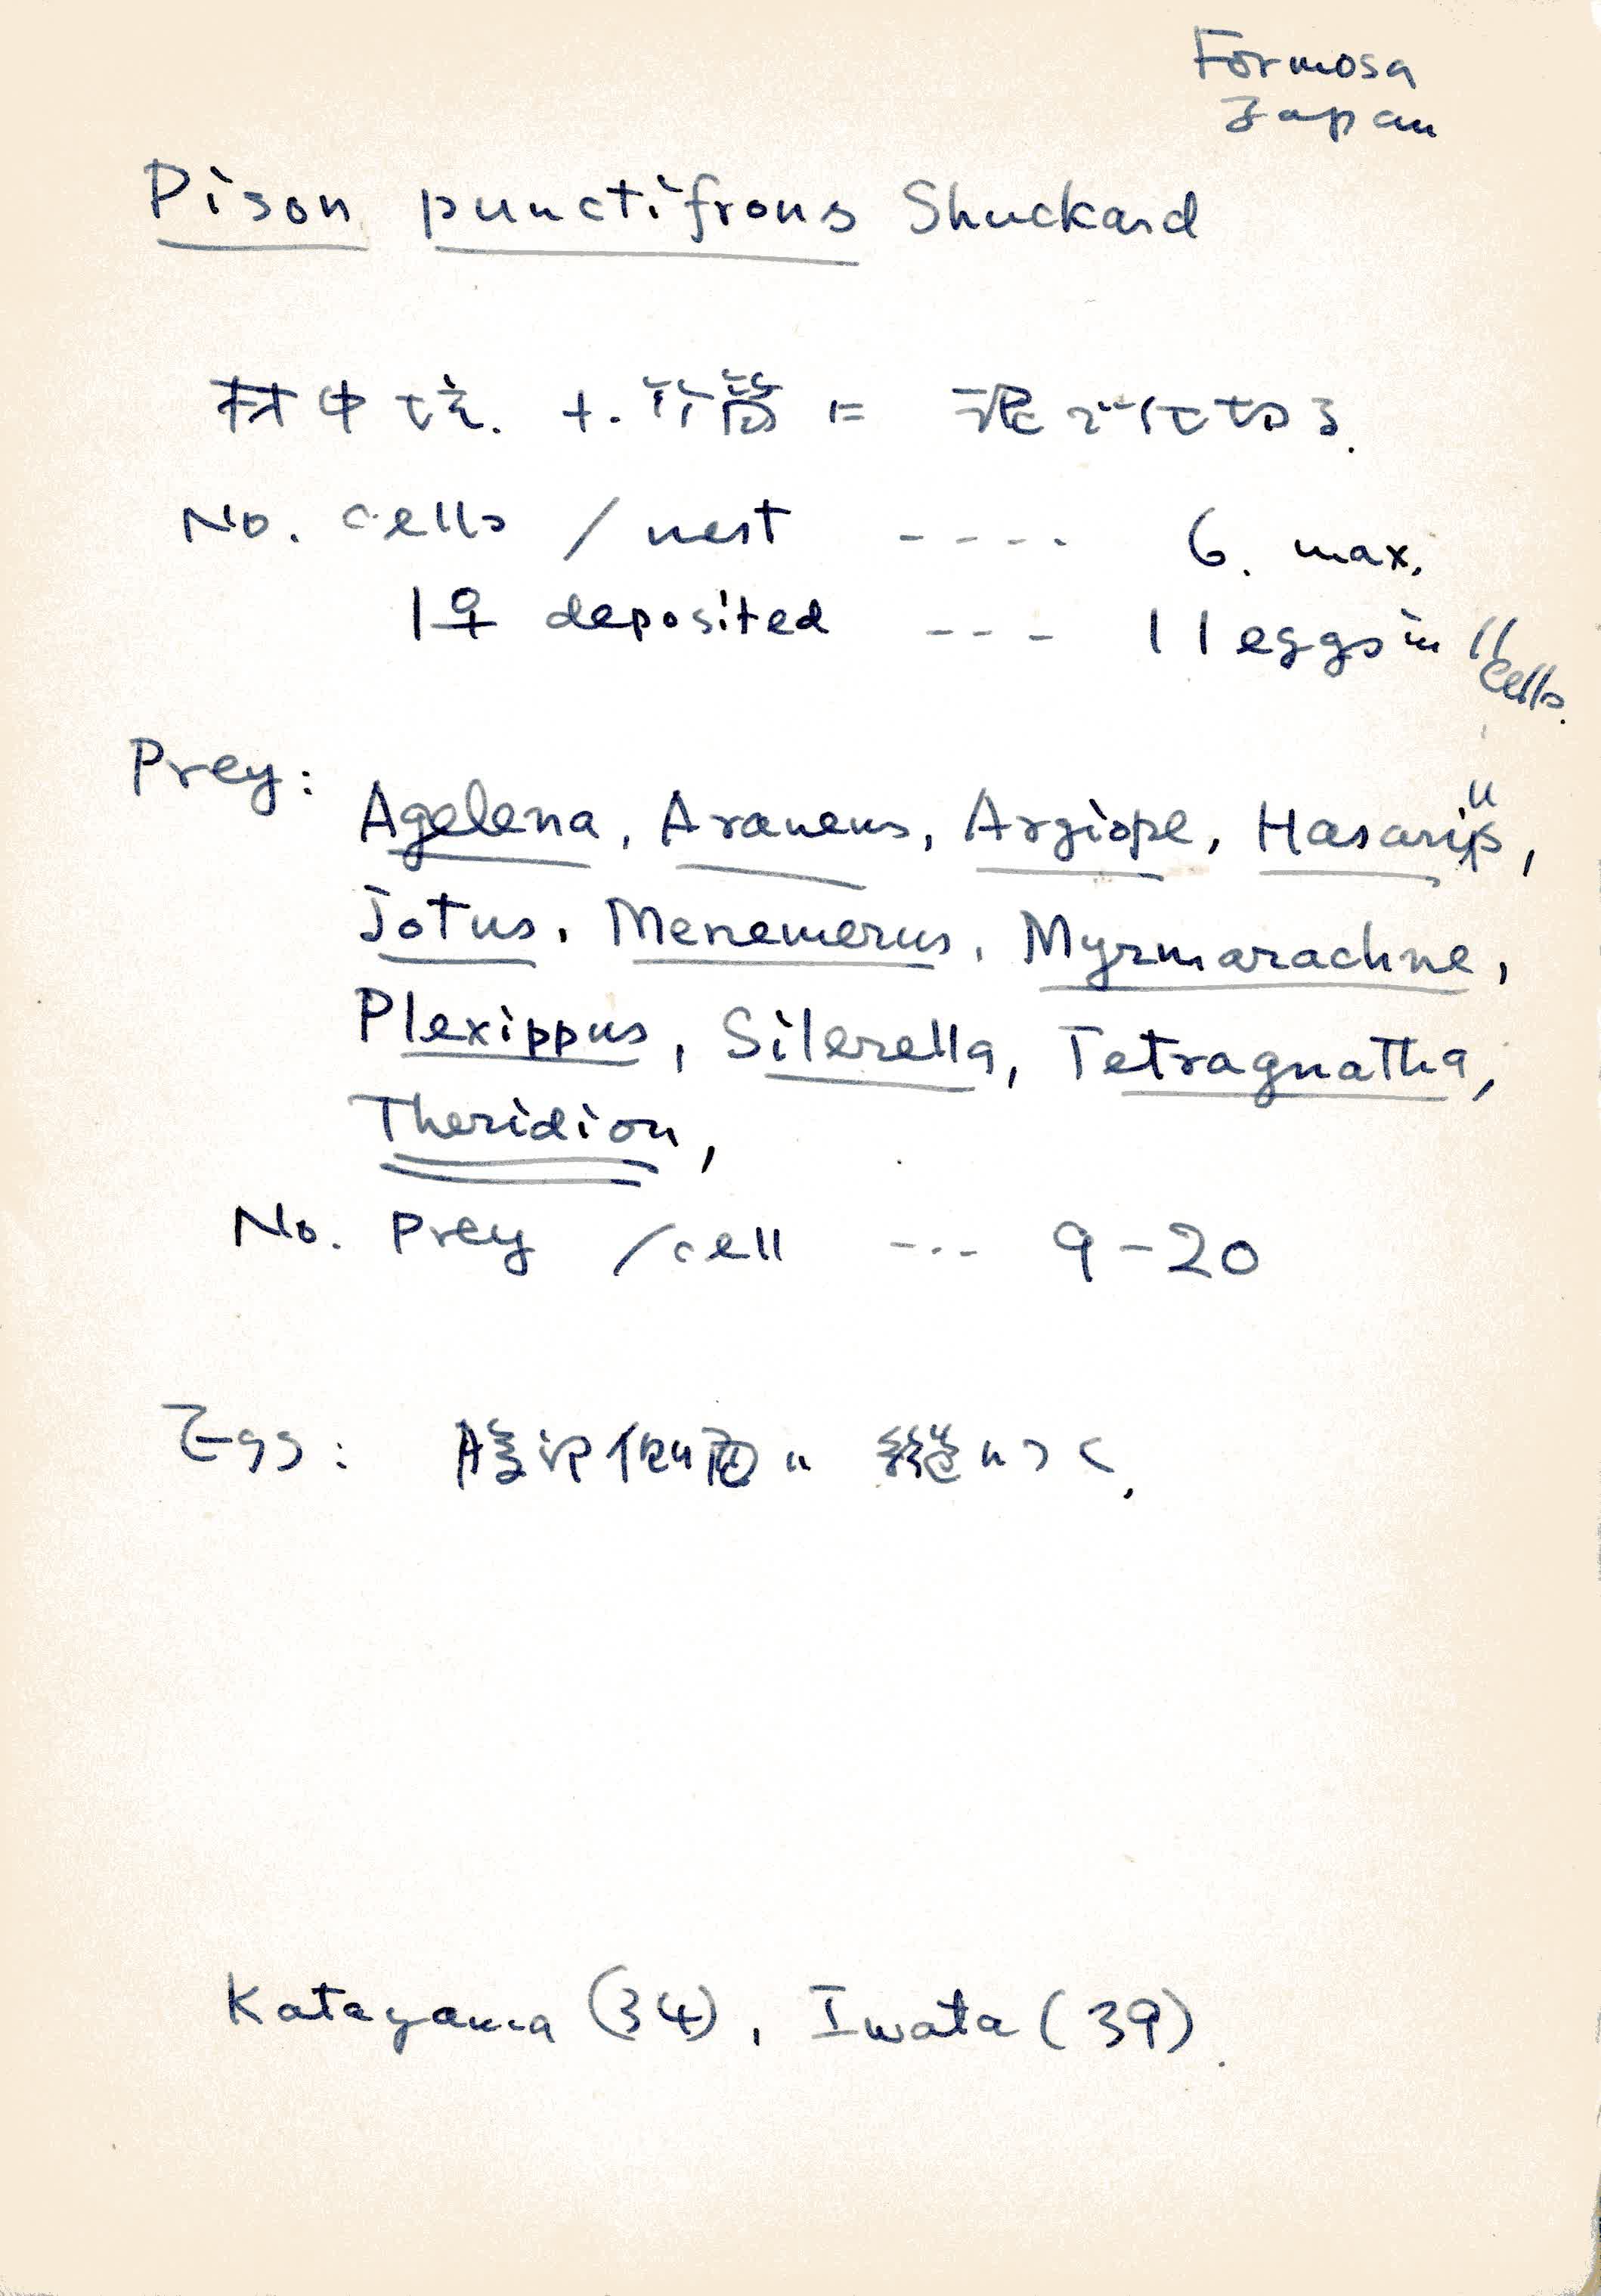 Formosa
Japan
Pison punctifrons Shuckard
材中坑. +. 竹筒に 泥で仕切る.
No. cells / nest ---- 6. max.
1♀ deposited --- 11 eggs in 11 cells.
Prey:
Agelena, Araneus, Argiope, Hasarius,
Jotus, Menemerus, Myrmarachne,
Plexippus, Silerella, Tetragnatha,
Theridion,
No. prey /cell --- 9-20
Egg: 腹部側面に 縦につく.
Katayama (34), Iwata (39).